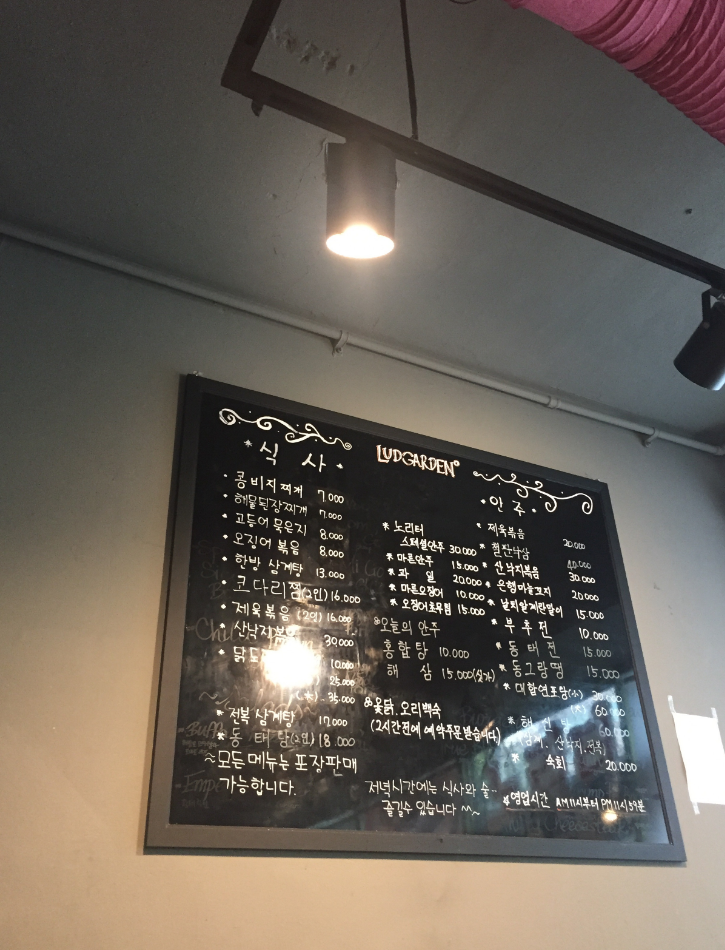 * 식 사 *
콩비지찌개 7.000
해물된장찌개 7.000
고등어 묵은지 8.000
오징어 볶음 8,000
한방 삼계탕 13.000
코다리찜(2인) 16.000
제육볶음 (2인) 16,000
산낙지볶음 30,000
닭도
10,000
25.000
35.000
전복 삼계탕 17,000
동태탕(2인) 18.000
~모든메뉴는 포장판매
가능합니다.
LUDGARDEN
* 노리터
스페셜안주 30.000
* 마른안주 15.000
* 과 일 20.000
* 마른오징어 10.000
* 오징어초무침 15.000
오늘의 안주
홍합탕 10.000
해 삼 15,000(싯가)
옻닭. 오리백숙
(2시간전에 예약주문받습니다)
저녁시간에는 식사와 술..
즐길수 있습니다 ^^~
안주
* 제육볶음 20.000
40.000
* 산낙지볶음 30.000
* 은행마늘꼬지 20.000
* 날치알계란말이 15.000
* 부추전 10.000
* 동태전 15.000
* 동그랑땡 15.000
* 대합연포탕(小) 30.000
(大) 60.000
60.000
산낙지, 전복)
* 숙회 20.000
영업시간 AM 11시부터 PM 11시 59분